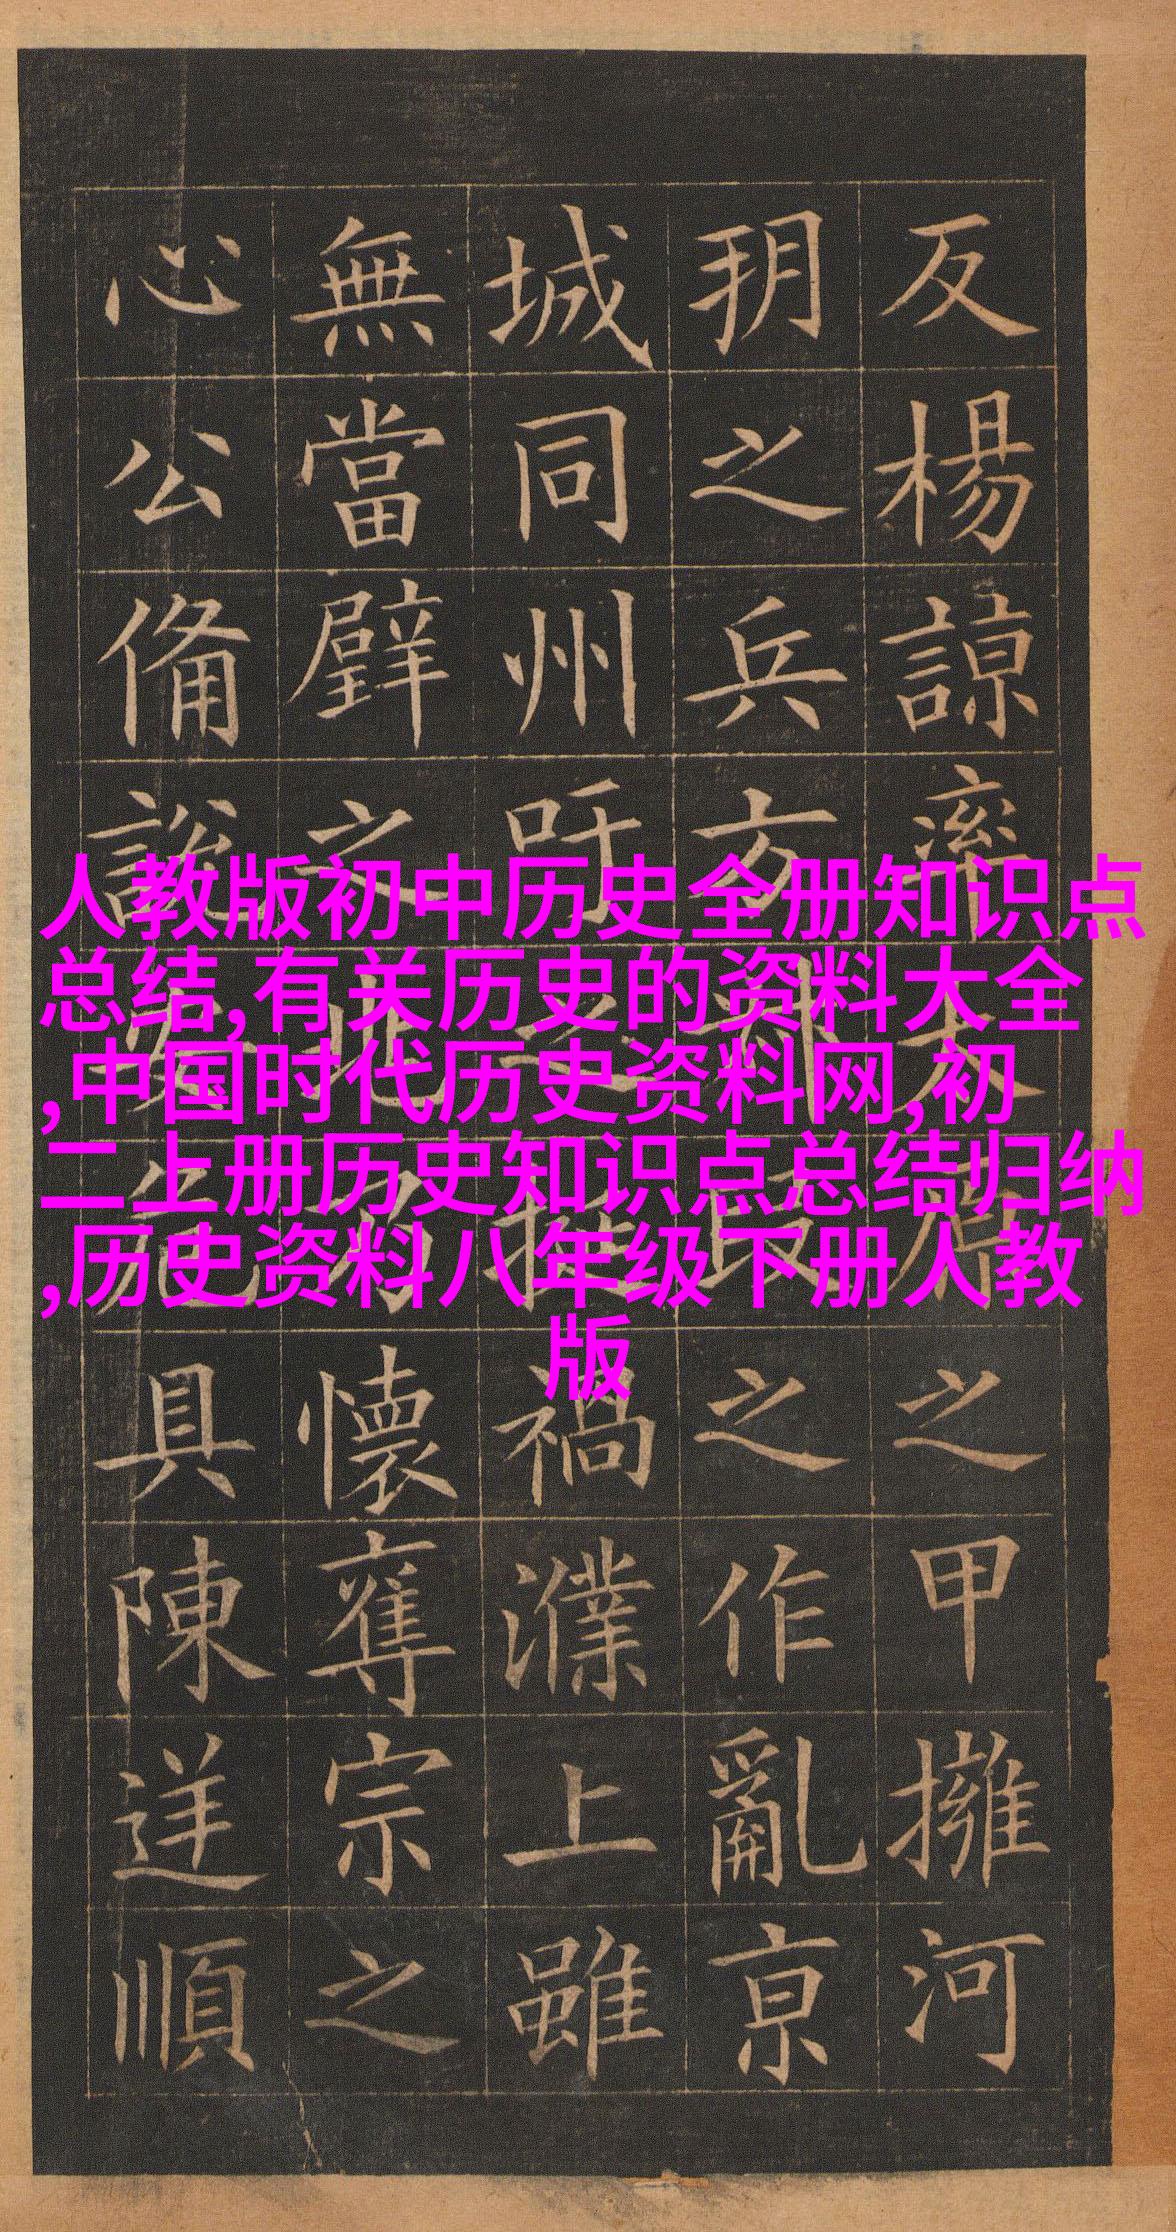 反楊諒率太原之甲擁河
朔之兵方叔段之作亂京
城同州吁之挺禍濮上雖
無當璧之兆乃懷奪宗之
心公備說安危具陳逆順
人教版初中历史全册知识点
总结,有关历史的资料大全
,中国时代历史资料网,初
二上册历史知识点总结归纳
,历史资料八年级下册人教
版